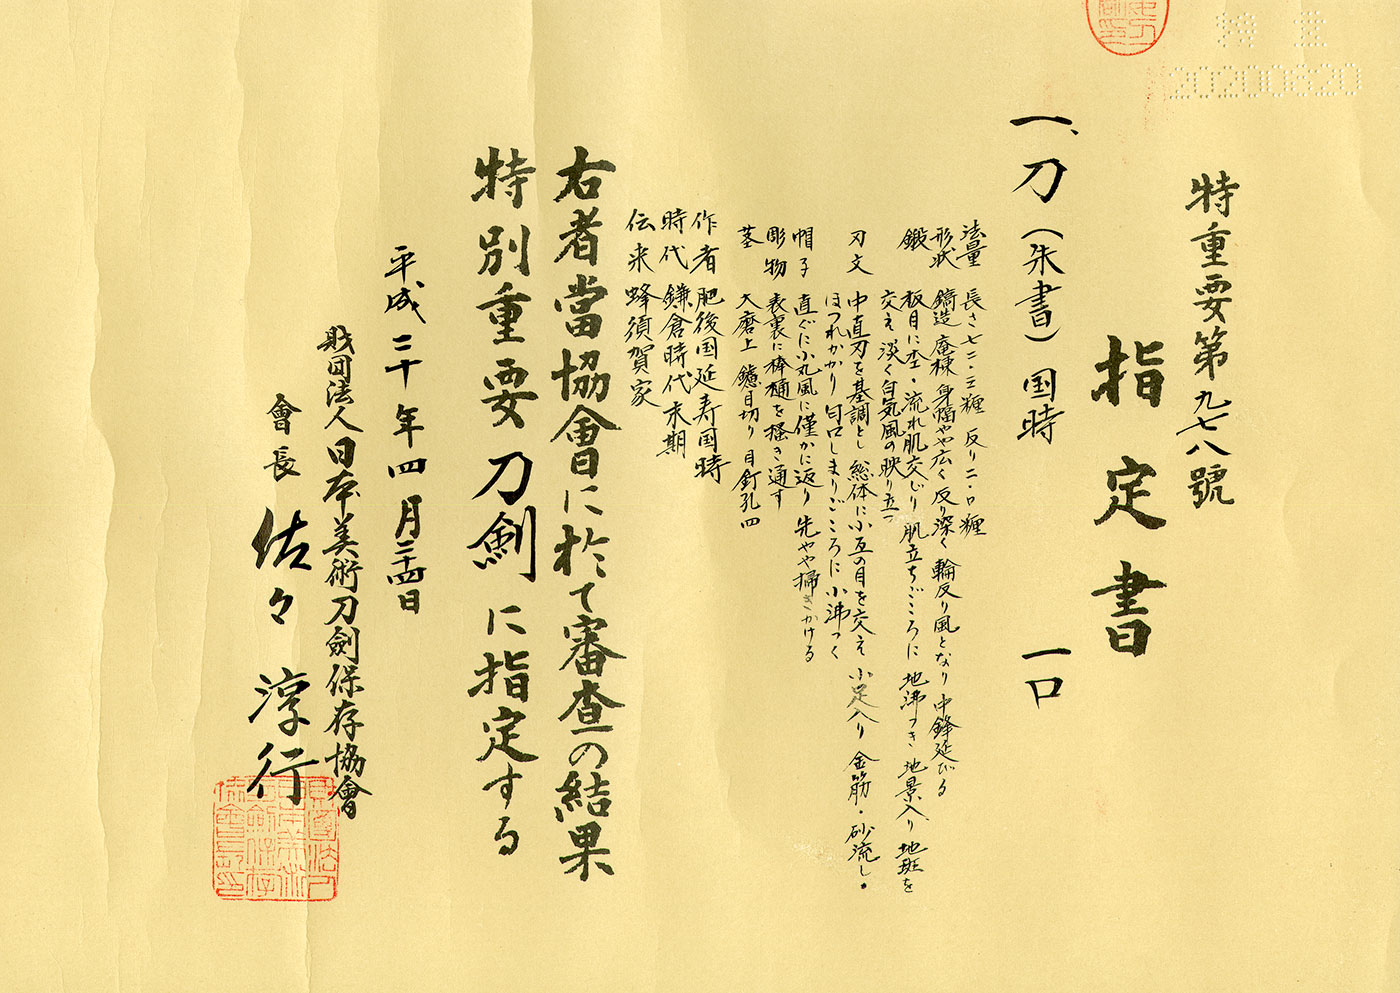 特重
20200620
特重要第九七八號
指定書
一、刀（朱書）国時 一口
法量 長さ七二・三糎 反り二・〇糎
形状 鎬造 庵棟 身幅やや広く 反り深く 輪反り風となり 中鋒延びる
鍛 板目に杢・流れ肌交じり 肌立ちごころに 地沸つき 地景入り 地斑を
交え 淡く白気風の映り立つ
刃文 中直刃を基調とし 総体に小互の目を交え 小足入り 金筋・砂流し・
ほつれかかり 匂口しまりごころに 小沸つく
帽子 直ぐに小丸風に僅かに返り 先やや掃きかける
彫物 表裏に棒樋を掻き通す
茎 大磨上 鑢目切り 目釘孔四
作者 肥後国延寿国時
時代 鎌倉時代末期
伝来 蜂須賀家
右者當協會に於て審査の結果
特別重要刀劍に指定する
平成二十年四月二十四日
財団法人日本美術刀劍保存協會
會長 佐々淳行